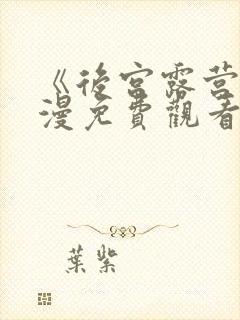 《後宮露營
漫免費觀看
葉紫